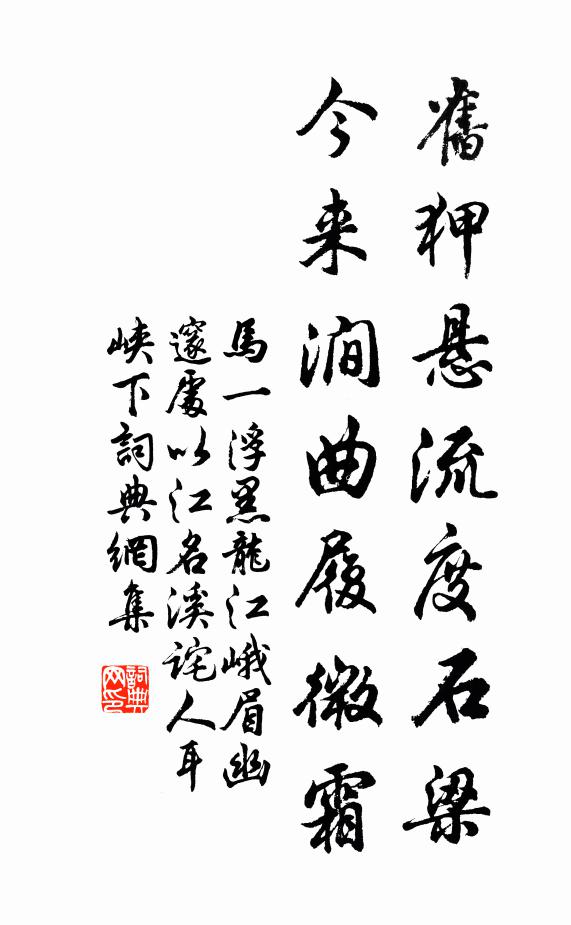 舊狎悬流度石梁
今来澗曲履微霜
馬一浮黑龍江峨眉幽
邃處以江名溪詫人耳
峡下詞典網集
詞典网印